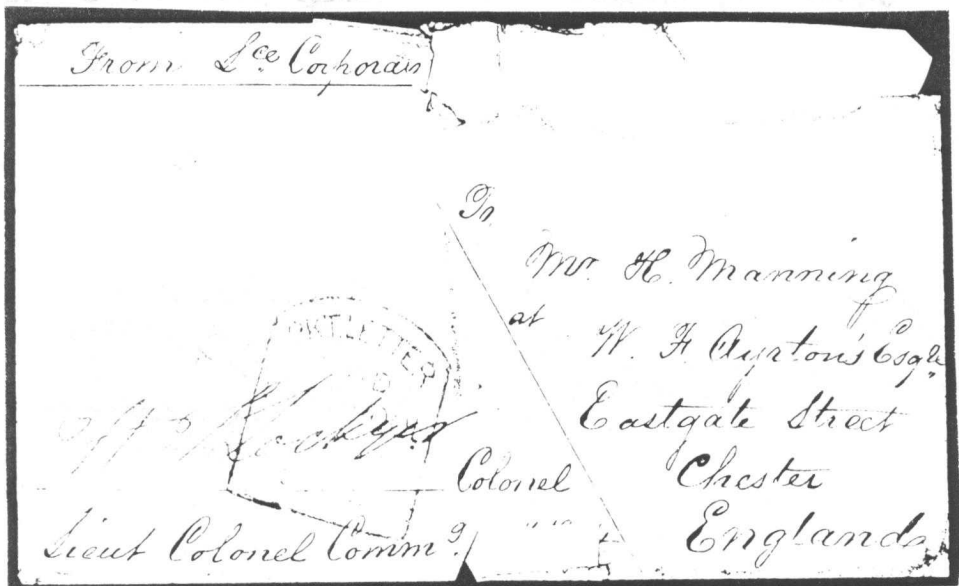 From Lce Corporal
To
Mr. H. Manning
at
W. F. Ayrton's Esqre
Eastgate Street
Chester
England
LETTER
Colonel
Lieut Colonel Commg.